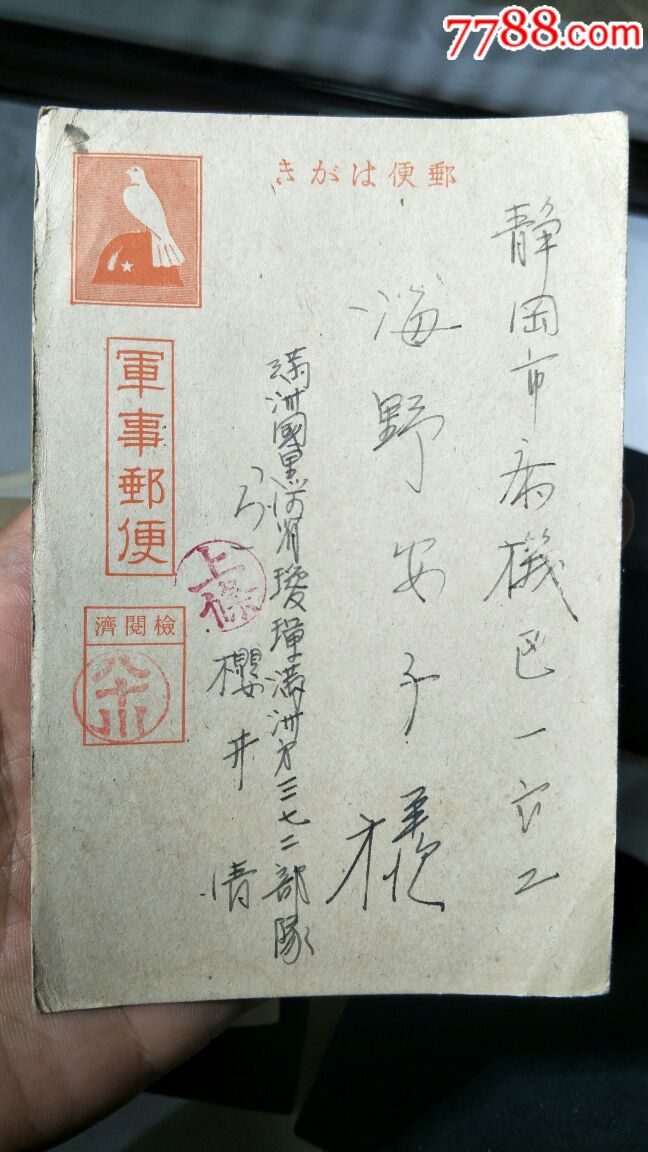 7788.com
きがは便郵
静岡市
海野安子様
満洲國黒河省璦琿満洲第三七二部隊
櫻井情
上條
軍事郵便
檢閲濟